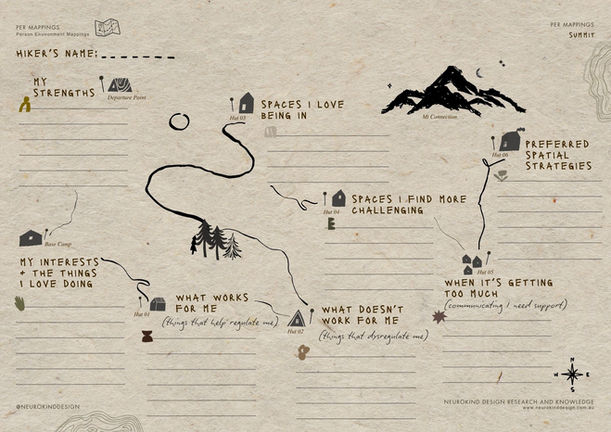 PER MAPPINGS
Person Environment Mappings
PER MAPPINGS
SUMMIT
HIKER'S NAME:
MY
STRENGTHS
Departure Point
Hut 03
SPACES I LOVE
BEING IN
Mt Connection
Hut 06
PREFERRED
SPATIAL
STRATEGIES
Hut 04
SPACES I FIND MORE
CHALLENGING
Base Camp
MY INTERESTS
+ THE THINGS
I LOVE DOING
Hut 05
WHEN IT'S GETTING
TOO MUCH
(communicating I need support)
Hut 01
WHAT WORKS
FOR ME
(things that help regulate me)
Hut 02
WHAT DOESN'T
WORK FOR ME
(things that dysregulate me)
N
W E
S
@NEUROKINDDESIGN
NEUROKIND DESIGN RESEARCH AND KNOWLEDGE
www.neurokinddesign.com.au